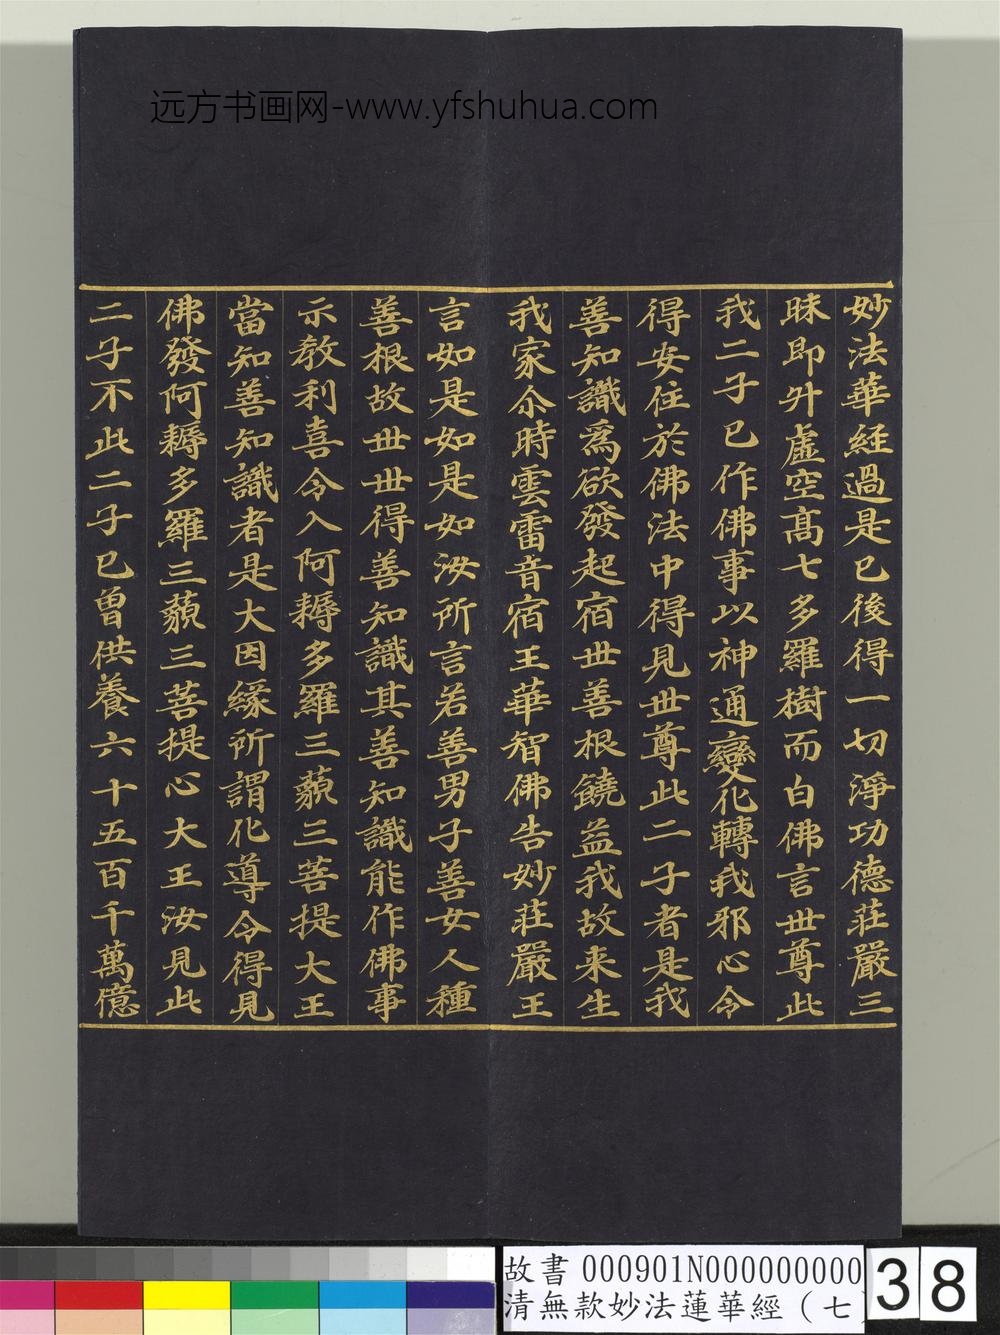 远方书画网-www.yfshuhua.com
妙法華経過是已後得一切淨功德莊嚴三
昧即升虛空髙七多羅樹而白佛言丗尊此
我二子已作佛事以神通變化轉我邪心令
得安住於佛法中得見丗尊此二子者是我
善知識爲欲發起宿丗善根饒益我故来生
我家尒時雲雷音宿王華智佛告妙莊嚴王
言如是如是如汝所言若善男子善女人種
善根故丗丗得善知識其善知識能作佛事
示教利喜令入阿耨多羅三藐三菩提大王
當知善知識者是大因緣所謂化導令得見
佛發何耨多羅三藐三菩提心大王汝見此
二子不此二子已曾供養六十五百千萬億
故書 000901N000000000 38
清無款妙法蓮華經（七）